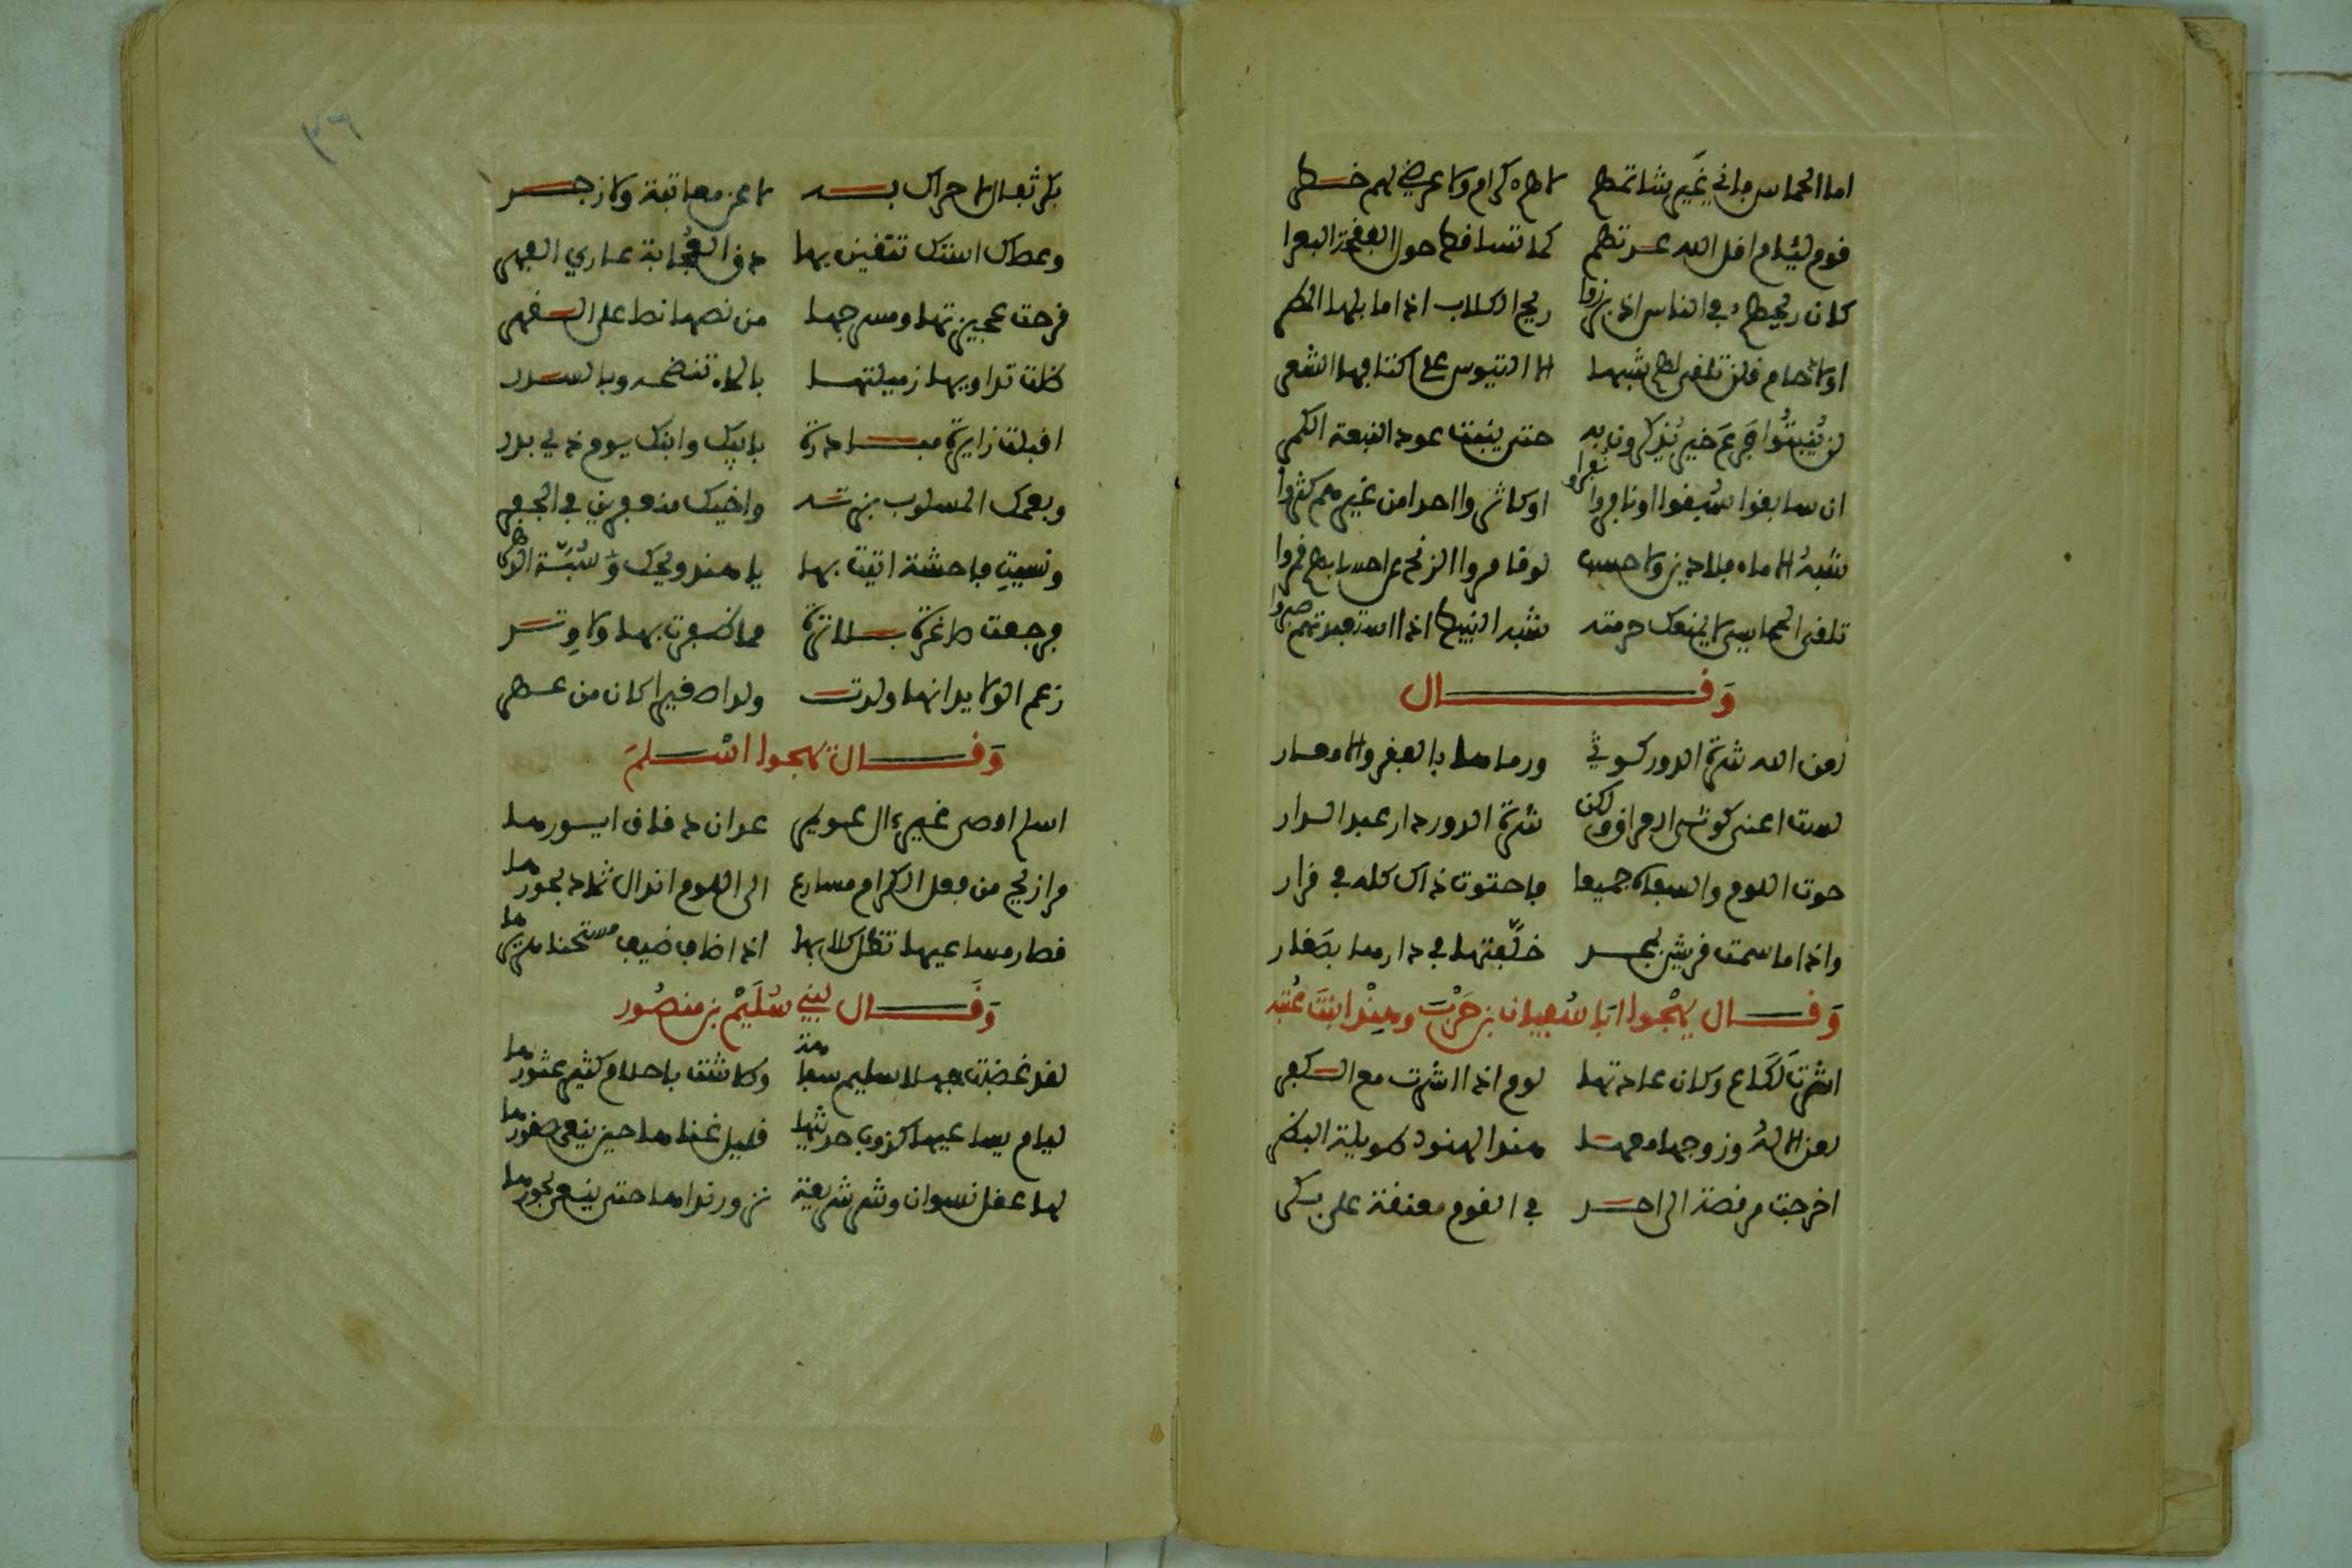 اما الحماس فاني غير شاتمهم لا هم كرام ولا عرضي لهم خطر
قوم لئام اقل الله عدتهم كما تساقط حول الفقحة البعر
كان ريحهم في الناس اذ برزوا ريح الكلاب اذا ما بلها المطر
اولاد حام فلن تلقى لهم شبها الا التيوس على اكتافها الشعر
لن ينبتوا فرع خير يذكرون به حتى ينبت عود النبعة الكمر
ان سابقوا سبقوا او نافروا نفروا او كاثروا احدا من غيرهم كثروا
شبه الاماء فلا دين ولا حسب لو قامروا الزنج عن احسابهم قمروا
تلقى الحماسي لا يمنعك حرمته شبه النبيط اذا استعبدتهم صبروا
وقال
زمن الله شرة الدور كوثى ورماها بالفقر والامعار
لست اعني كوثى العراق ولكن شرة الدور دار عبد الدار
حوت اللوم والسفاه جميعا فاحتوت ذاك كله في قرار
واذا ما سمت قريش لمجد خلفتها في دارها بصغار
وقال يهجوا ابا سفيان بن حرب وهند ابنت عتبه
اشرت لكاع وكان عادتها لوم اذا اشرت مع الكفر
لعن الاله وزوجها معها هند الهنود طويلة البظر
اخرجت مرقصة الى احد في القوم معنقة على بكر
بكر ثفال لا حراك به لا عن معاتبة ولا زجر
وعصاك استك تتقين بها دق العجاية عاري الفهر
قرحت عجيزتها ومشرجها من نصها نصا على القهر
ظلت تداويها زميلتها بالماء تنضحه وبالسدر
اقبلت زايرة مبادرة بابيك وابنك يوم ذي بدر
وبعمك المسلوب بزته واخيك منعفرين في الجفر
ونسيت فاحشة اتيت بها يا هند ويحك سبة الدهر
فرجعت صاغرة بلا ترة مما ظفرت بها ولا وتر
زعم الولايد انها ولدت ولدا صغيرا كان من عهر
وقال يهجوا اسلم
قصار مساعيها تظل كلابها
وقال لبني سليم بن منصور
لقد غضبت جهلا سليم سفاهة وطاشت باحلام كثير عثورها
ليام مساعيها كذوب حديثها قليل غناها حين ينعى صقورها
لها عقل نسوان وشر شريعة نزور نداها حتى ينعى بحورها